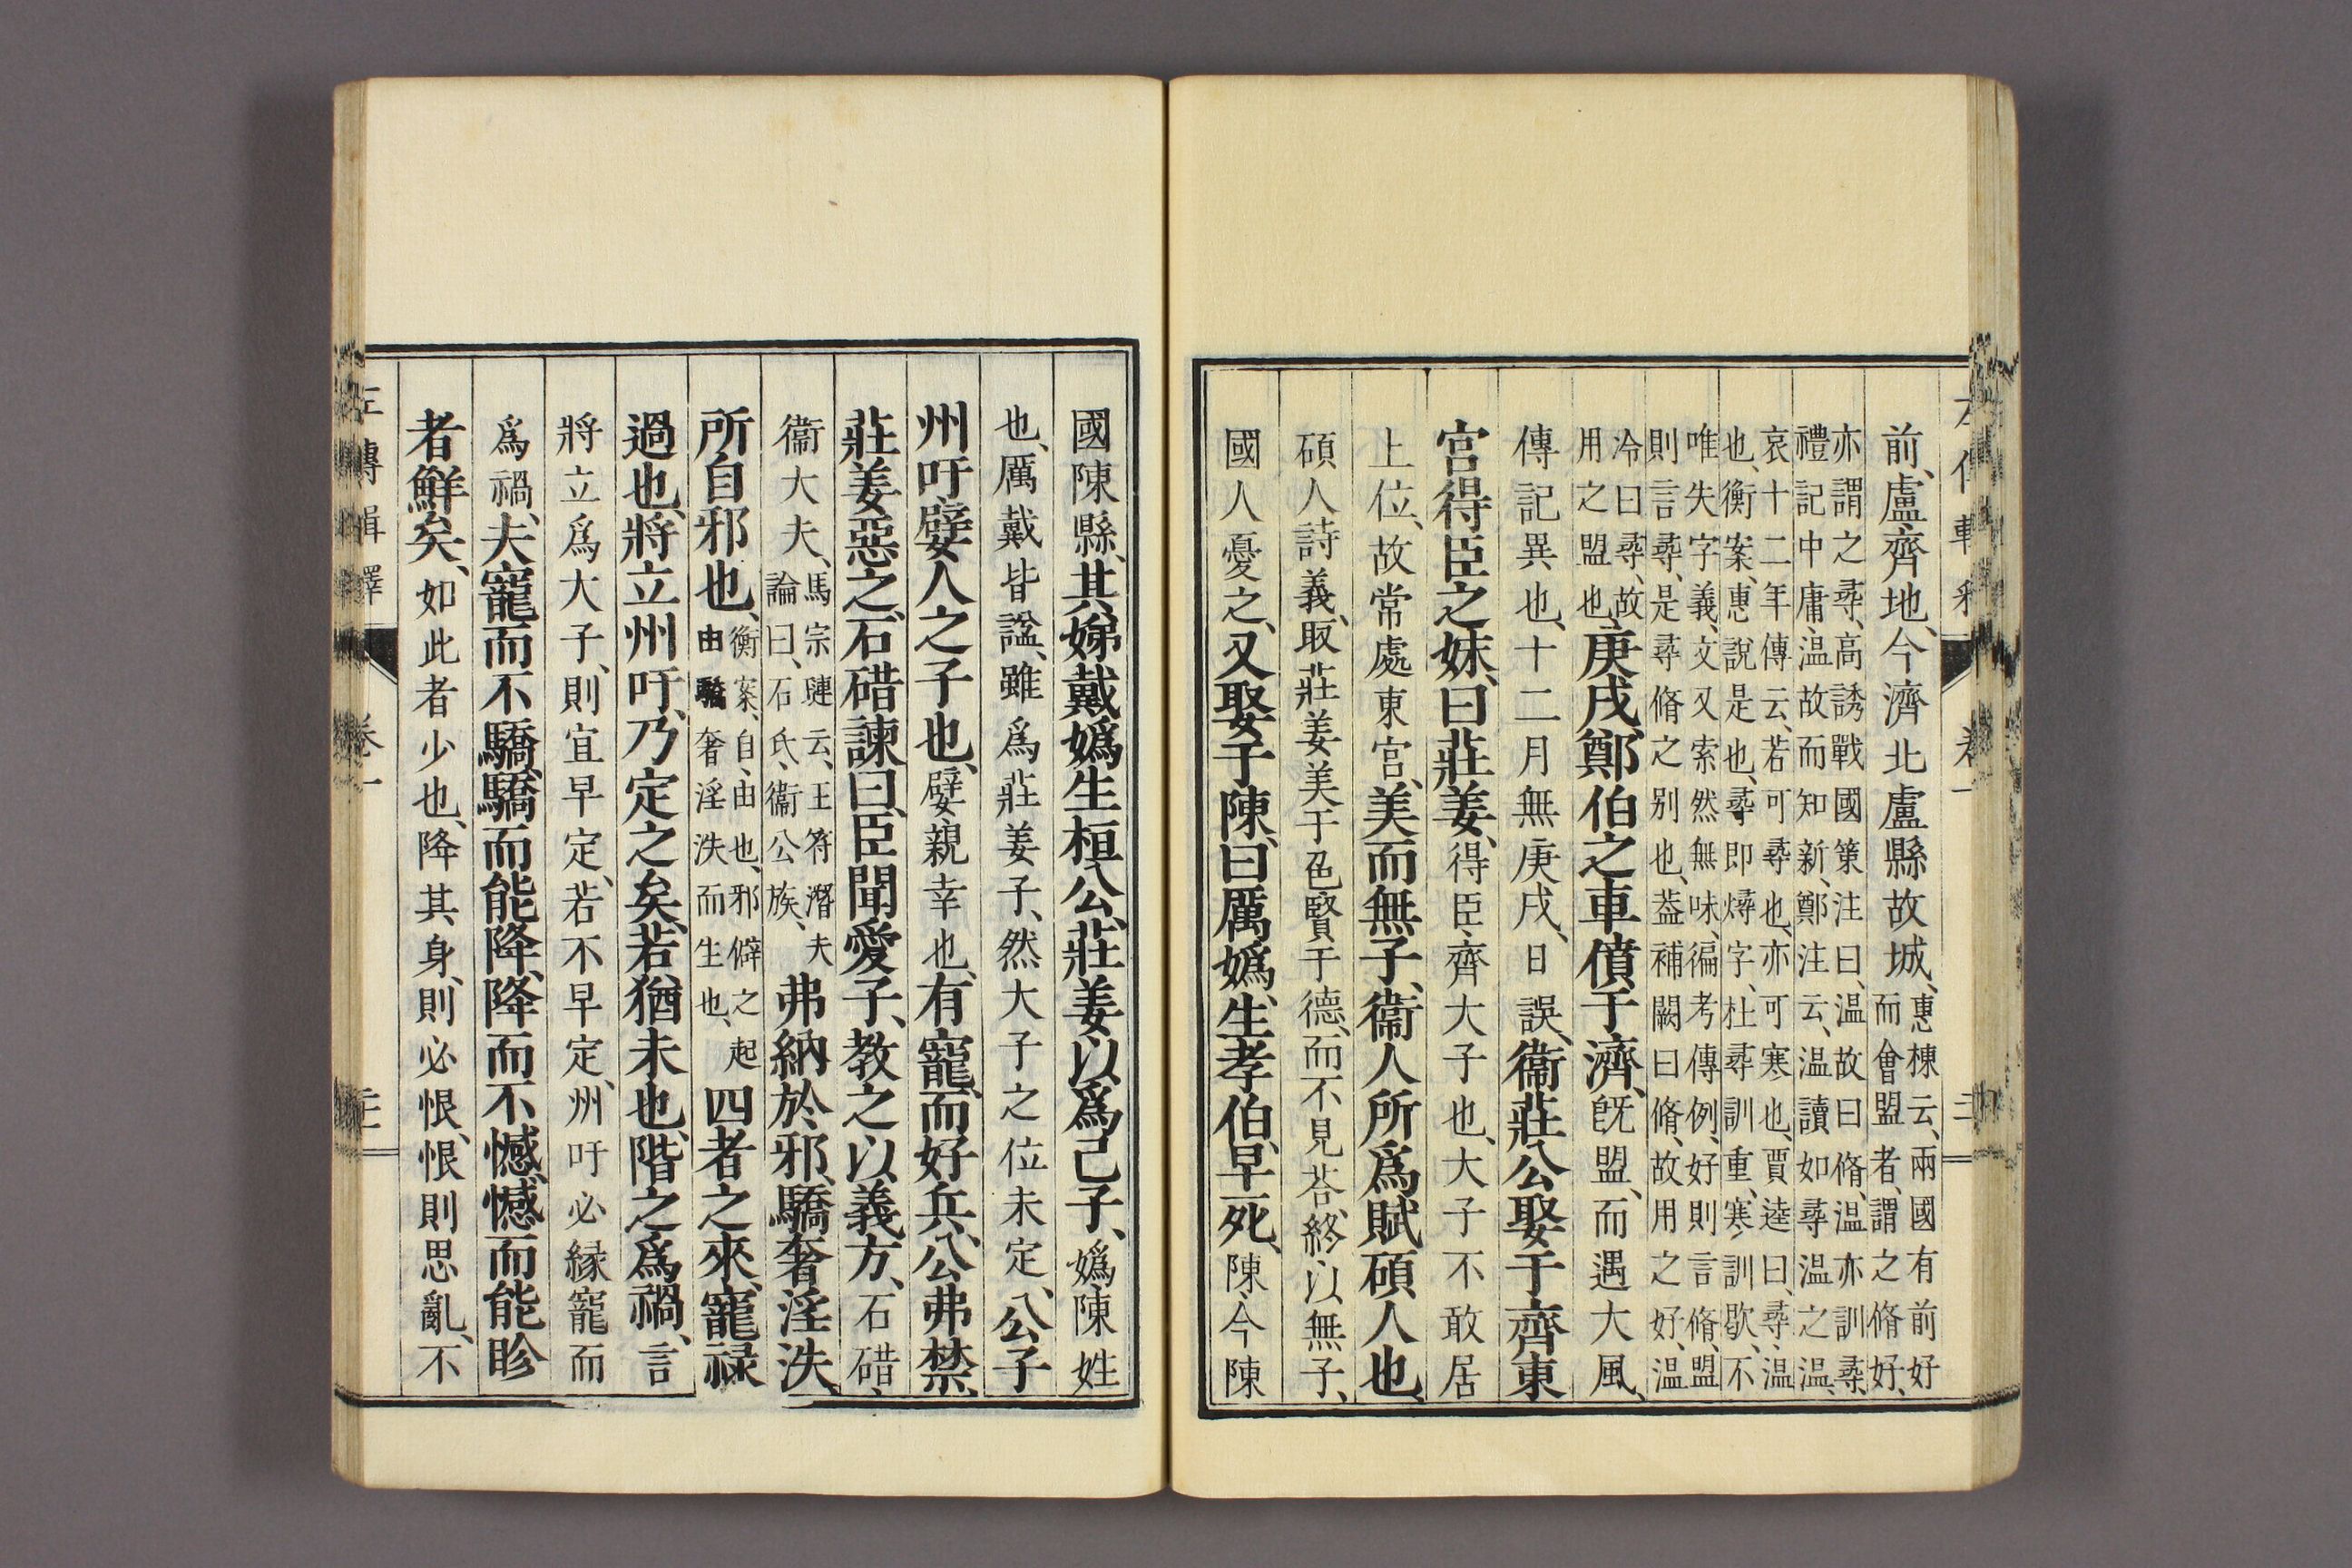 前、盧、齊地、今濟北盧縣故城、惠棟云、兩國有前好
而會盟者、謂之脩好、
亦謂之尋、高誘戰國策注曰、温故曰脩、温亦訓尋、
禮記中庸、温故而知新、鄭注云、温讀如尋温之温、
哀十二年傳云、若可尋也、亦可寒也、賈逵曰、尋、温
也、衡案、惠說是也、尋即燖字、杜尋訓重、寒訓歇、不
唯失字義、文又索然無味、徧考傳例、好則言脩、盟
則言尋、是尋脩之別也、葢補闕曰脩、故用之好、温
冷曰尋、故
用之盟也、庚戌、鄭伯之車僨于濟、旣盟、而遇大風、
傳記異也、十二月無庚戌、日誤、衞莊公娶于齊東
宮得臣之妹、曰莊姜、得臣、齊大子也、大子不敢居
上位、故常處東宮、美而無子、衞人所爲賦碩人也、
碩人詩義、取莊姜美于色賢于德、而不見荅、終以無子、
國人憂之、又娶于陳、曰厲嬀、生孝伯、早死、陳、今陳
國陳縣、其娣戴嬀生桓公、莊姜以爲己子、嬀、陳姓
也、厲戴皆諡、雖爲莊姜子、然大子之位未定、公子
州吁、嬖人之子也、嬖親幸也、有寵、而好兵、公弗禁、
莊姜惡之、石碏諫曰、臣聞愛子、教之以義方、石碏、
衞大夫、馬宗璉云、王符潛夫
論曰、石氏、衞公族、弗納於邪、驕奢淫泆、
所自邪也、衡案、自、由也、邪僻之起
由驕奢淫泆而生也、四者之來、寵祿
過也、將立州吁、乃定之矣、若猶未也、階之爲禍、言
將立爲大子、則宜早定、若不早定、州吁必緣寵而
爲禍、夫寵而不驕、驕而能降、降而不憾、憾而能眕
者鮮矣、如此者少也、降其身、則必恨、恨則思亂、不
左傳輯釋 卷一